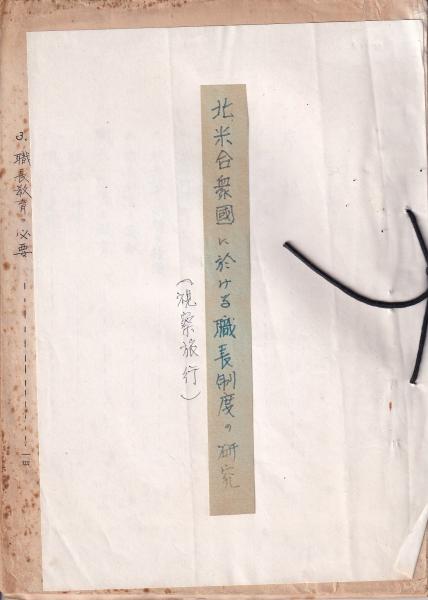 北米合衆國に於ける職長制度の研究
(視察旅行)
3. 職長教育 必要